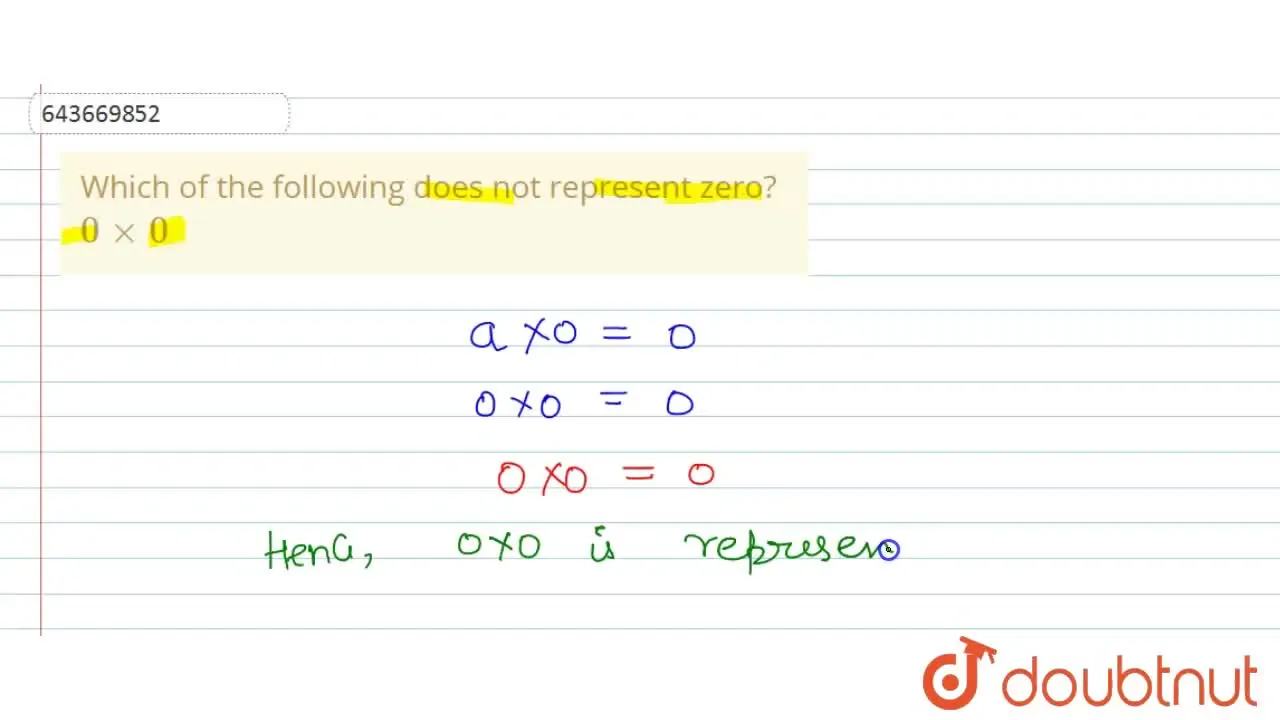 643669852
Which of the following does not represent zero?
0 × 0
a × 0 = 0
0 × 0 = 0
0 × 0 = 0
Henc, 0 × 0 is represen
doubtnut